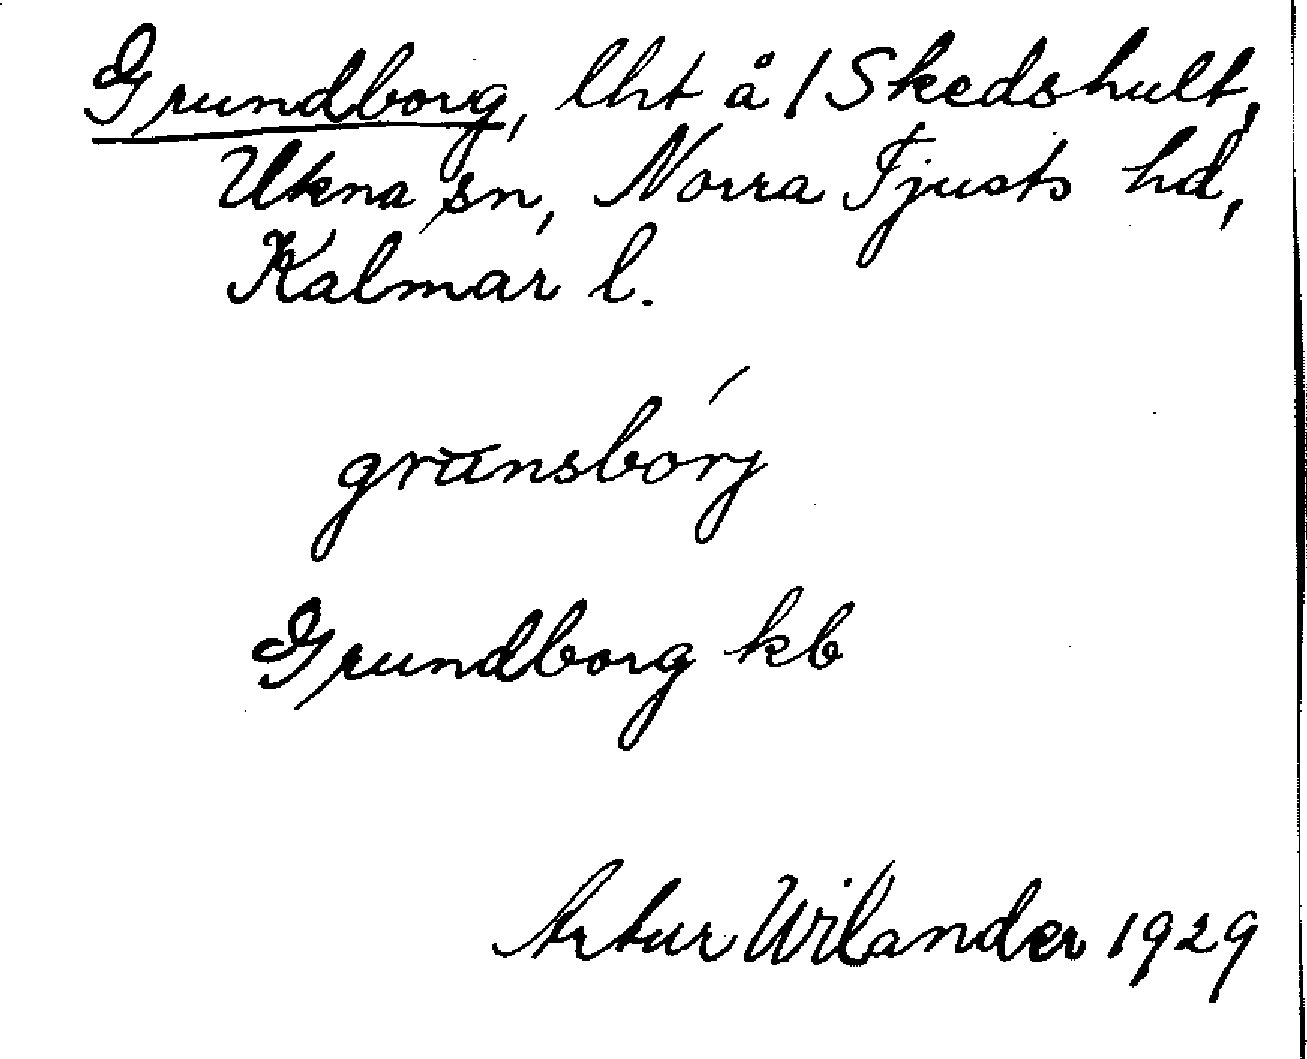 Grundborg, lht å /Skedshult,
Ukna sn, Norra Tjusts hd,
Kalmar l.
grūnsbórj
Grundborg kb
Artur Wilander 1929